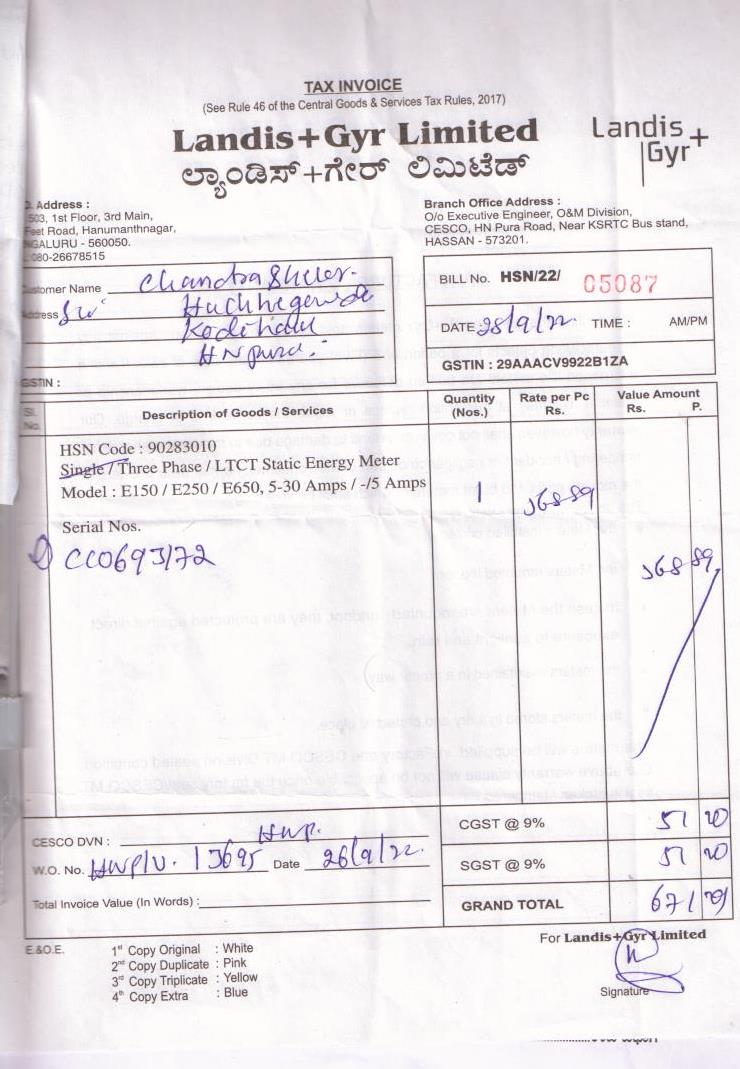 TAX INVOICE
(See Rule 46 of the Central Goods & Services Tax Rules, 2017)
Landis+Gyr Limited
ಲ್ಯಾಂಡಿಸ್+ಗೇರ್ ಲಿಮಿಟೆಡ್
Landis+
Gyr
Address :
503, 1st Floor, 3rd Main,
Feet Road, Hanumanthnagar,
NGALURU - 560050.
080-26678515
Branch Office Address :
O/o Executive Engineer, O&M Division,
CESCO, HN Pura Road, Near KSRTC Bus stand,
HASSAN - 573201.
ustomer Name
ddress
Kodihalli
HNpura
GSTIN :
BILL No. HSN/22/ 05087
DATE 28/9/22 TIME : AM/PM
GSTIN : 29AAACV9922B1ZA
Sl. No. Description of Goods / Services Quantity (Nos.) Rate per Pc Rs. Value Amount Rs. P.
HSN Code : 90283010
Single / Three Phase / LTCT Static Energy Meter
Model : E150 / E250 / E650, 5-30 Amps / -/5 Amps 1 568 89
Serial Nos.
CC0693172
568 89
CESCO DVN : HNP. CGST @ 9% 51 20
W.O. No. Date 26/9/22 SGST @ 9% 51 20
Total Invoice Value (In Words) : GRAND TOTAL 671 29
E.&O.E.
For Landis+Gyr Limited
1st Copy Original : White
2nd Copy Duplicate : Pink
3rd Copy Triplicate : Yellow
4th Copy Extra : Blue
Signature